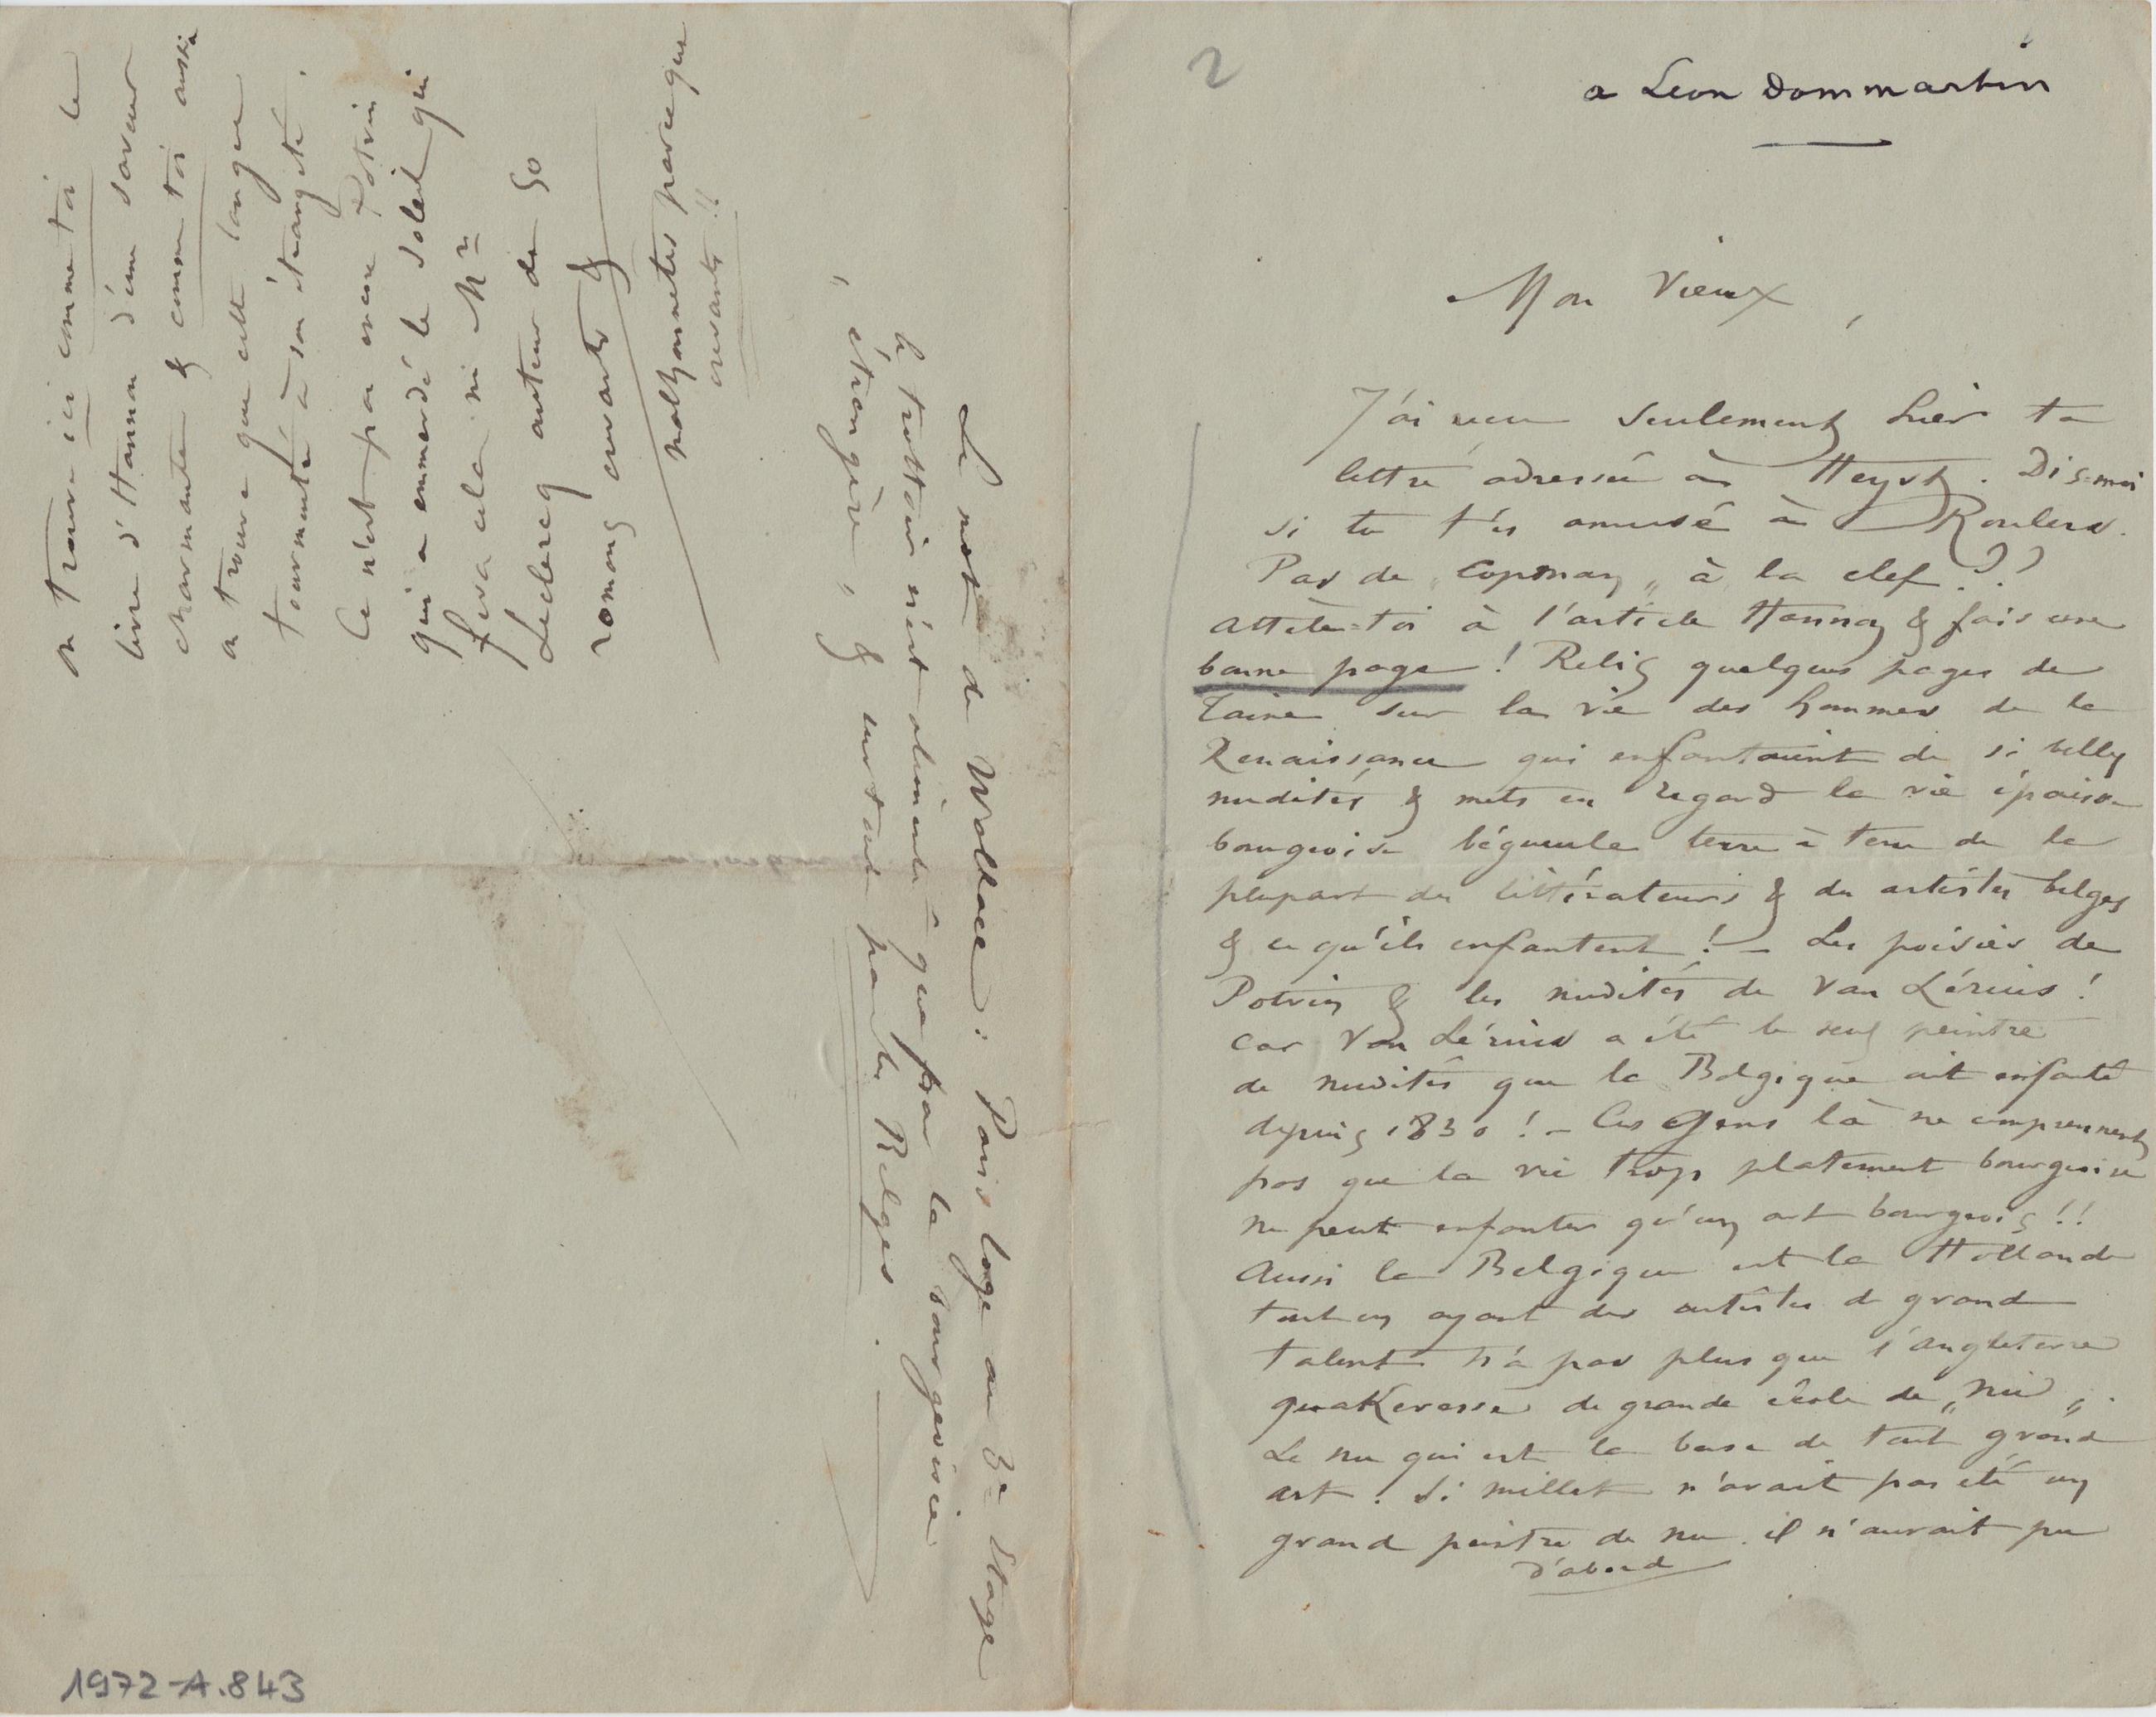 2
a Léon Dommartin
Mon Vieux,
J'ai reçu seulement hier ta
lettre adressée à Heyst. Dis-moi
si tu t'es amusé à Roulers.
Pas de „ à la clef??
Attèle-toi à l'article Hannon & fais une
bonne page! Relis quelques pages de
Taine sur la vie des hommes de la
Renaissance qui enfantaient de si belles
nudités & mets en regard la vie épaisse
bourgeoise bégueule terre à terre de la
plupart des littérateurs & des artistes belges
& ce qu'ils enfantent! – Les poésies de
Potvin & les nudités de Van Lérius!
Car Van Lérius a été le seul peintre
de nudités que la Belgique ait enfanté
depuis 1830! – Ces Gens là ne comprennent
pas que la vie trop platement bourgeoise
ne peut enfanter qu'un art bourgeois!!
Aussi la Belgique et la Hollande
tout en ayant des artistes de grand
talent n'a pas plus que l'angleterre
quakeresse de grande école de „nu„.
Le nu qui est la base de tout grand
art. Si Millet n'avait pas été un
grand peintre de nu il n'aurait pu
d'abord
On trouve ici comme toi le
livre d'Hannon d'une saveur
charmante & comme toi aussi
on trouve que cette langue
tourmentée à son étrangeté.
Ce n'est pas encore Potvin
qui a emmerdé le soleil qui
fera cela ni Mr
Leclercq auteur de 50
romans crevants &
malhonnêtes parce que
crevants!!
Le mot de Wollace: Paris loge au 3e Etage
le trottoir n'est alimenté que par la bourgeoisie
„étrangère„ & surtout par les Belges.
1972-A.843